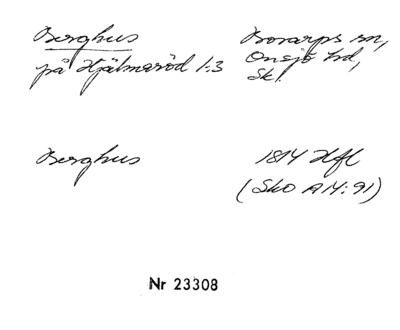 Berghus
på Hjälmaröd 1:3
Bosarps sn,
Onsjö hd,
Sk.
Berghus
1814 Hfl
(Sko A14:91)
Nr 23308